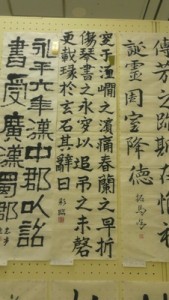 傳芳之跡斯存
誕靈周室降德
空于之濱痛春蘭之早折
傷琴書之永空以追弔之未磬
更裁於玄石其辭曰
永平六年漢中郡以詔
書受廣漢蜀郡